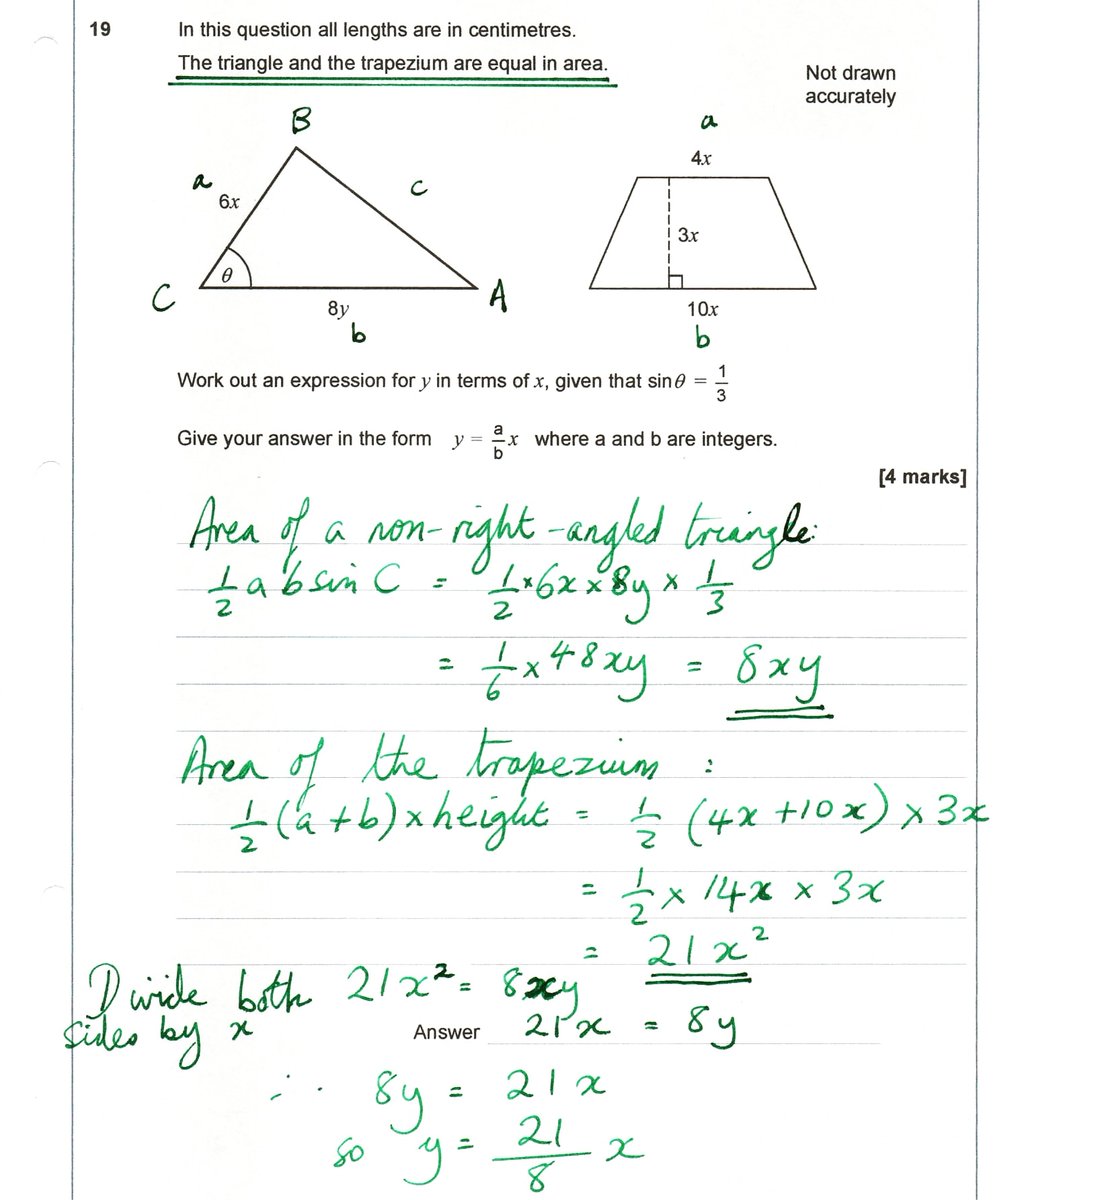 19 In this question all lengths are in centimetres.
The triangle and the trapezium are equal in area.
Not drawn
accurately
B
a
6x
c
θ
C
A
8y
b
a
4x
3x
10x
b
Work out an expression for y in terms of x, given that sin θ = 1/3
Give your answer in the form y = a/b x where a and b are integers.
[4 marks]
Area of a non-right-angled triangle:
1/2 a b sin C = 1/2 × 6x × 8y × 1/3
= 1/6 × 48xy = 8xy
Area of the trapezium :
1/2 (a + b) × height = 1/2 (4x + 10x) × 3x
= 1/2 × 14x × 3x
= 21x²
Divide both 21x² = 8xy
sides by x
Answer 21x = 8y
∴ 8y = 21x
so y = 21/8 x